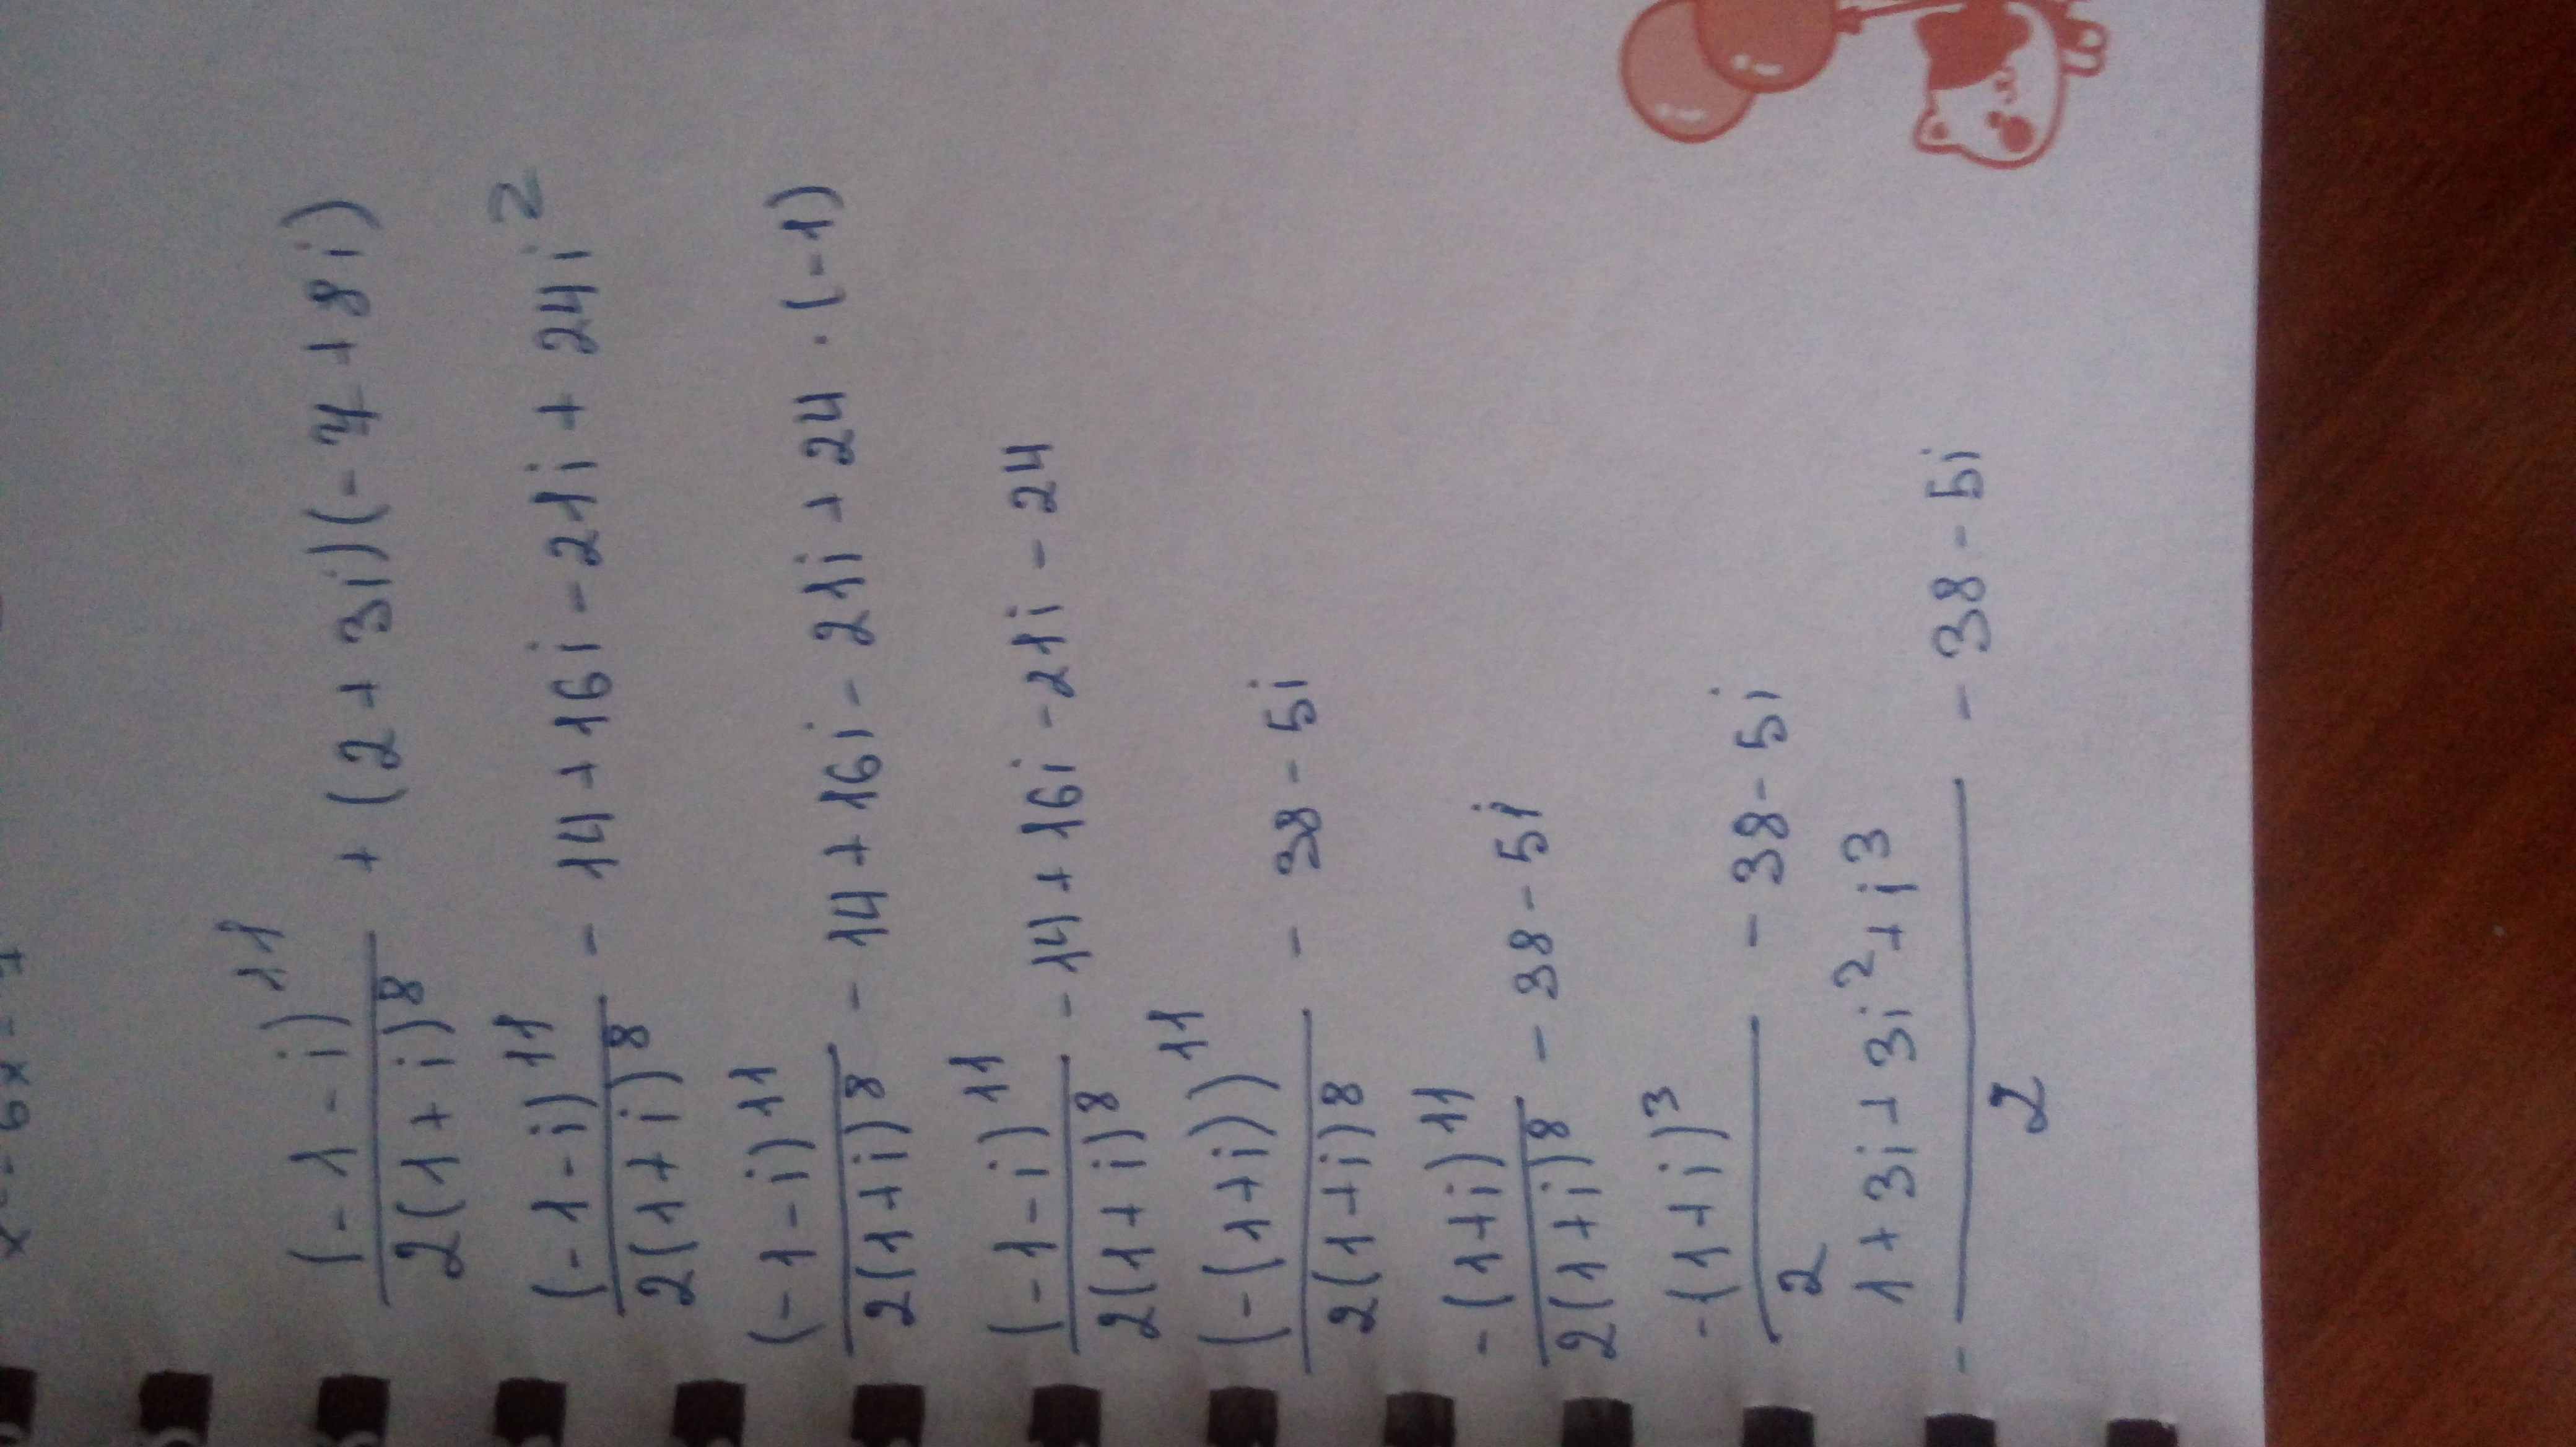 (-1-i)^11 / 2(1+i)^8 + (2+3i)(-7+8i)
(-1-i)^11 / 2(1+i)^8 - 14+16i-21i+24i^2
(-1-i)^11 / 2(1+i)^8 - 14+16i-21i+24·(-1)
(-1-i)^11 / 2(1+i)^8 - 14+16i-21i-24
(-(1+i))^11 / 2(1+i)^8 - 38-5i
-(1+i)^11 / 2(1+i)^8 - 38-5i
-(1+i)^3 / 2 - 38-5i
- 1+3i+3i^2+i^3 / 2 - 38-5i